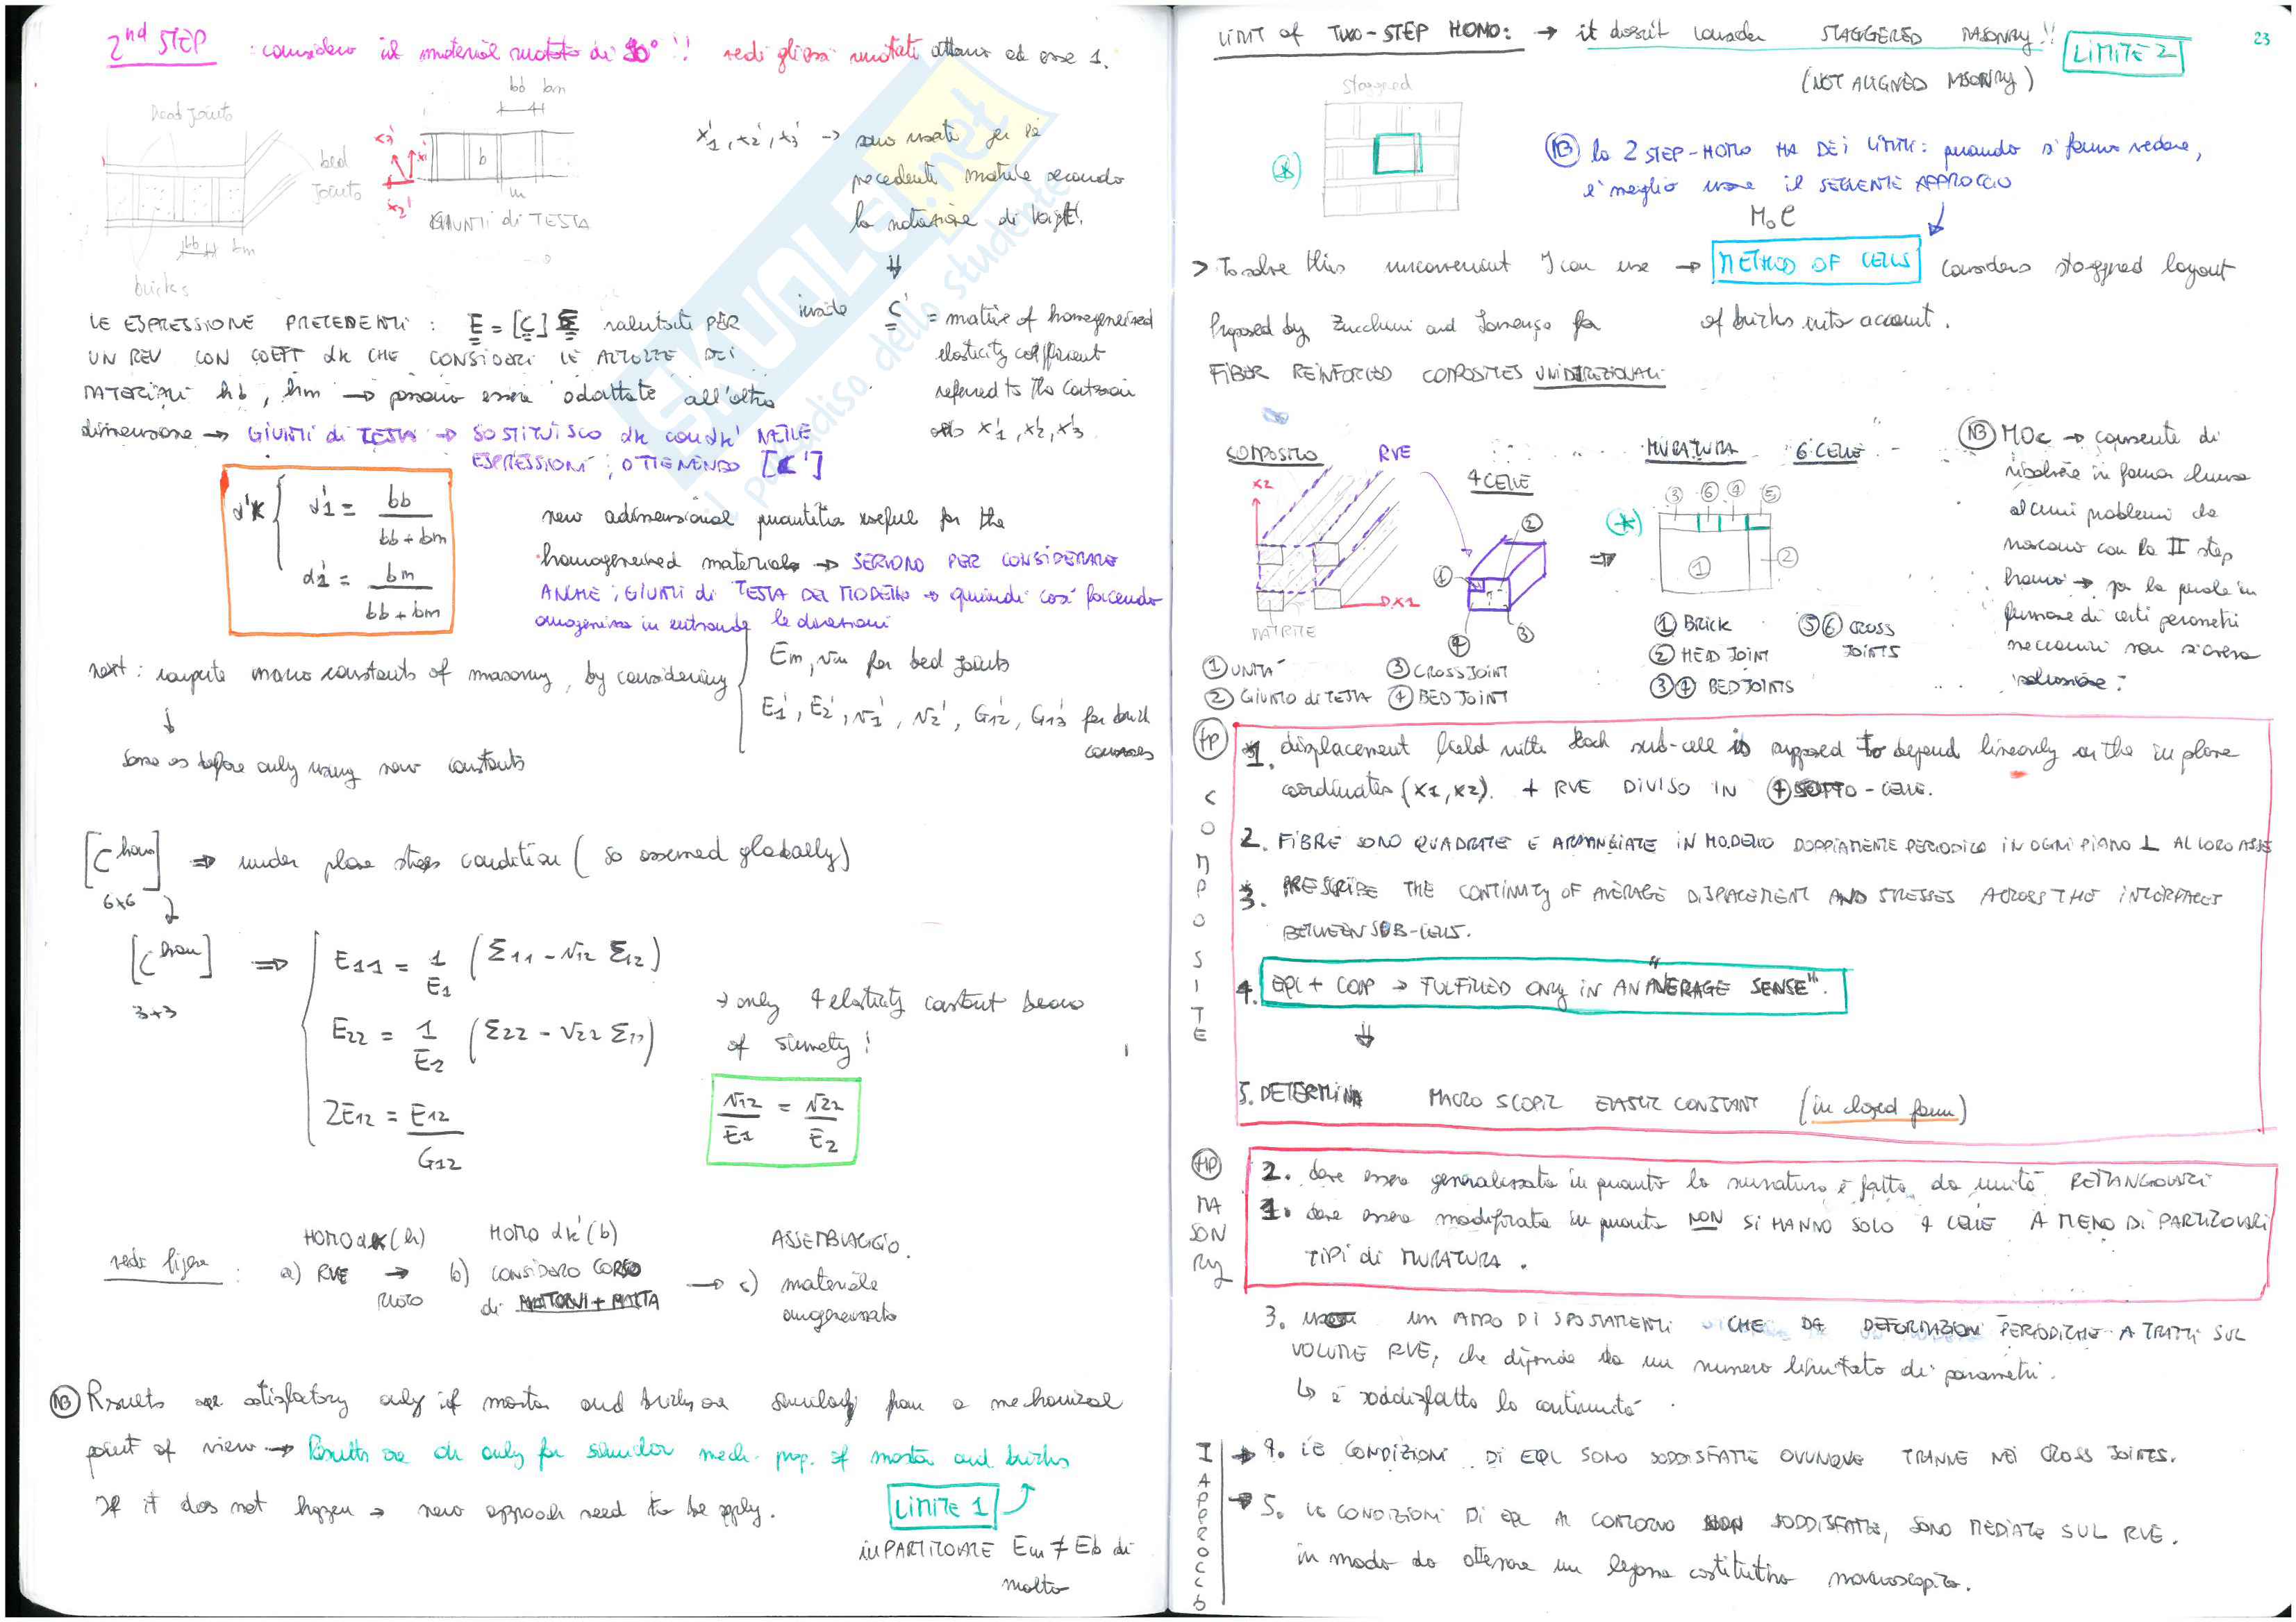 2nd STEP : considero il material ruotato di 90° !! vedi gli assi ruotati attorno ad asse 1.
bb bm
head joints
bed joints
x3' x1' b
x2' m
GIUNTI di TESTA
bb bm
bricks
x'1, x2', x3' → sono usati per le
precedenti matrice secondo
la notazione di Voigt!
⇓
inside C' = matrix of homogeneised
elasticity coefficient
referred to the cartesian
axis x'1, x'2, x'3
LE ESPRESSIONE PRECEDENTI : E = [C] Σ valutate PER
UN REV CON COEFF αk CHE CONSIDERI LE ALTEZZE DEI
MATERIALI hb, hm → possono essere adattate all'altra
dimensione → GIUNTI di TESTA → SOSTITUISCO αk con αk' NELLE
ESPRESSIONI, OTTENENDO [C']
α'k { α'1 = bb / (bb + bm)
α'2 = bm / (bb + bm)
new adimensional quantities useful for the
homogeneised materials → SERVONO PER CONSIDERARE
ANCHE i GIUNTI di TESTA DEL MODELLO → quindi così facendo
omogenizzo in entrambe le direzioni
next : compute macro constants of masonry, by considering { Em, νm for bed joints
E1', E2', ν1', ν2', G12', G13' for brick courses
↓
same as before only using new constants
[C homo] 6x6 ⇒ under plane stress condition (so assumed globally)
[C hom] 3x3 ⇒ { E11 = 1/E1 (Σ11 - ν12 Σ12)
E22 = 1/E2 (Σ22 - ν22 Σ11)
2E12 = E12 / G12
→ only 4 elasticity constant because
of simmetry !
ν12/E1 = ν22/E2
vedi figura : HOMO αk (h) HOMO αk' (b) ASSEMBLAGGIO.
a) RVE → b) CONSIDERO CORSO → c) materiale
di MATTONI + MALTA omogeneizzato
NB Results are satisfactory only if mortar and bricks are similarly from a mechanical
point of view → Results are ok only for similar mech. prop. of mortar and bricks
If it does not happen → new approach need to be apply. LIMITE 1
in PARTICOLARE Em ≠ Eb di
molto
23
LIMIT of TWO-STEP HOMO: → it doesn't consider STAGGERED MASONRY !! LIMITE 2
(NOT ALIGNED MASONRY)
staggered
NB la 2 STEP-HOMO HA DEI LIMITI: quando si fanno vedere,
è meglio usare il SEGUENTE APPROCCIO
MoC
> To solve this inconvenient I can use → METHOD OF CELLS considers staggered layout
of bricks into account.
Proposed by Zucchini and Lourenço for
FIBER REINFORCED COMPOSITES UNIDIREZIONALI
COMPOSITO RVE 4 CELLE
x2
x1
MATRICE
1 UNITÀ 3 CROSS JOINT
2 GIUNTO di TESTA 4 BED JOINT
MURATURA 6 CELLE
3 6 4 5
1 2
1 BRICK 5 6 CROSS JOINTS
2 HEAD JOINT
3 4 BED JOINTS
NB MOC → consente di
risolvere in forma chiusa
alcuni problemi che
nascono con la II step
homo → per la quale in
funzione di certi parametri
meccanici non si aveva
soluzione.
HP COMPOSITE
1. displacement field with each sub-cell is supposed to depend linearly on the in plane
coordinates (x1, x2). + RVE DIVISO IN 4 SOTTO-CELLE.
2. FIBRE SONO QUADRATE E ARRANGIATE IN MODELLO DOPPIAMENTE PERIODICO IN OGNI PIANO ⊥ AL LORO ASSE
3. PRESCRIBE THE CONTINUITY OF AVERAGE DISPLACEMENT AND STRESSES ACROSS THE INTERFACES
BETWEEN SUB-CELLS.
4. EQL + COMP → FULFILLED ONLY IN AN "AVERAGE SENSE".
⇓
5. DETERMINA MACROSCOPIC ELASTIC CONSTANT (in closed form)
HP MASONRY
2. deve essere generalizzata in quanto la muratura è fatta da unità RETTANGOLARI
1. deve essere modificata in quanto NON SI HANNO SOLO 4 CELLE A MENO DI PARTICOLARI
TIPI di MURATURA.
3. un CAMPO DI SPOSTAMENTI CHE DA DEFORMAZIONI PERIODICHE A TRATTI SUL
VOLUME RVE, che dipende da un numero limitato di parametri.
↳ è soddisfatta la continuità.
I APPROCCIO
→ 4. LE CONDIZIONI DI EQL SONO SODDISFATTE OVUNQUE TRANNE NEI CROSS JOINTS.
→ 5. LE CONDIZIONI DI EQL AL CONTORNO NON SODDISFATTE, SONO MEDIATE SUL RVE.
in modo da ottenere un legame costitutivo macroscopico.
SKUOLA.net
il paradiso dello studente